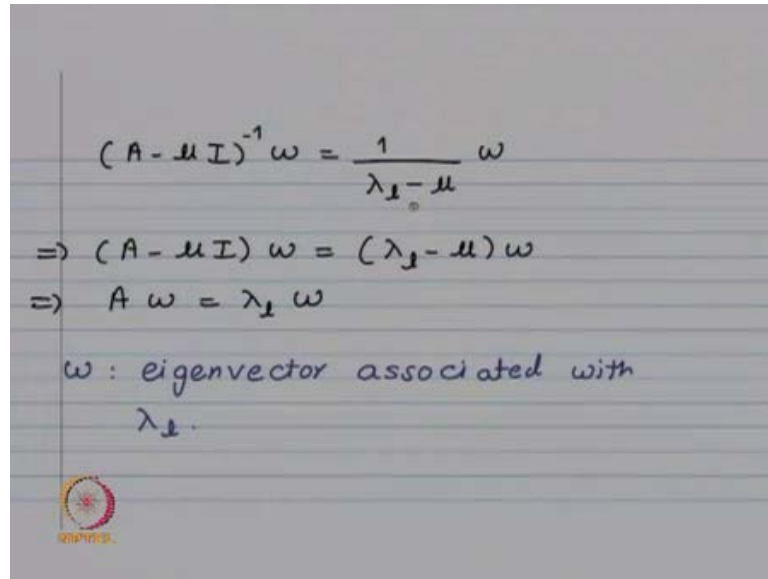 (A - μI)⁻¹ ω = 1/(λ_l - μ) ω
⇒ (A - μI) ω = (λ_l - μ) ω
⇒ A ω = λ_l ω
ω : eigenvector associated with
λ_l.